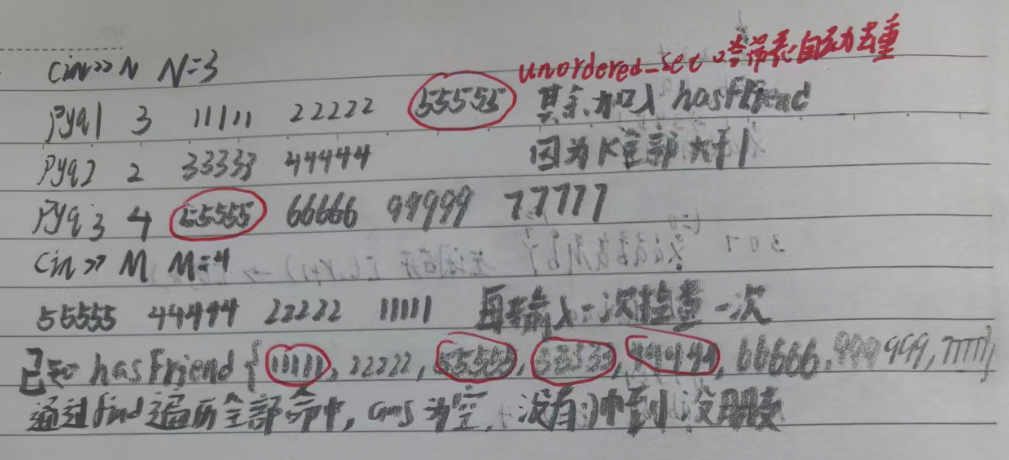 cin>>N N=3
unordered_set 哈希表自动去重
pyq1 3 11111 22222 55555 其余加入 hasFriend
pyq2 2 33333 44444 因为K全部大于1
pyq3 4 55555 66666 99999 77777
cin>> M M=4
55555 44444 22222 11111 每输入一次检查一次
已知 hasFriend {11111, 22222, 55555, 33333, 44444, 66666, 999999, 77777}
通过find遍历全部命中, ans为空, 没有 找到 没朋友